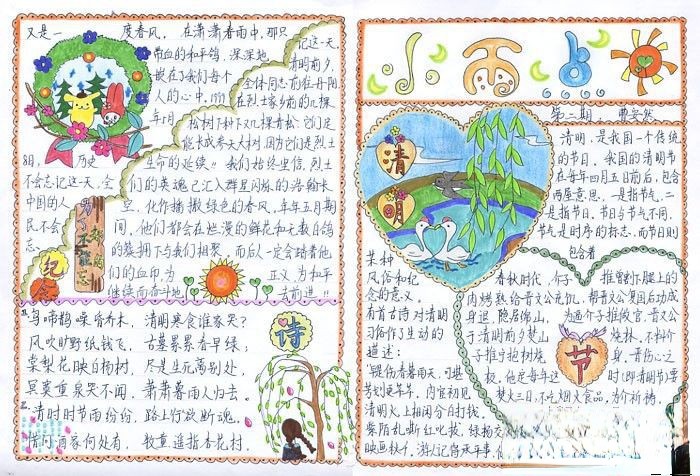 又是一
度春风，在潇潇春雨中，那只
带血的和平鸽，深深地
嵌在了我们每个
人的心中。1999
年5月
8日，历史
不会忘记这一天，全
中国的人
民不会
忘
记这一天。
清明前夕，
全体同志前往丹阳
在烈士家乡前的几棵
松树下种下几棵青松它们定
能长成参天大树，因为它们是烈士
生命的延续！！我们始终坚信，烈士
们的英魂已汇入群星闪烁的浩翰长
空，化作播撒绿色的春风，年年五月期
间，他们都会在烂漫的鲜花和无数白鸽
的簇拥下与我们相聚，而后人一定会踏着他
们的血印为
正义为和平
继续而奋斗地
去前进！！
纪念
乌啼鹊噪昏乔木，清明寒食谁家哭？
风吹旷野纸钱飞，古墓累累春草绿；
棠梨花映白杨树，尽是生死离别处
冥寞重泉哭不闻，萧萧暮雨人归去。
清明时节雨纷纷，路上行人欲断魂。
借问酒家何处有，牧童遥指杏花村。
诗
小雨点
第二期 曹安然
清明
清明，是我国一个传统
的节日，我国的清明节
在每年四月五日前后，包含
两层意思，一是指节气，二
是指节日，节日与节气不同，
节气是时序的标志，而节日则
包含着
某种
风俗和纪
念的意义，
有首古诗对清明
习俗作了生动的
描述：
春秋时代，介子推割下腿上的
肉烤熟给晋文公充饥，帮晋文公复国后功成
身退，隐居绵山，为逼介子推做官，晋文公
于清明前夕焚山烧林，不料介
子推宁抱树烧死，晋伤心之
极，他定每年这时（即清明节）禁
焚火三日，不吃烟火食品，为介祈祷，
节
清明火上相闲分自打钱，
柴陌乱嘶红叱拔，绿杨交
映画秋千，游人记得承平事，